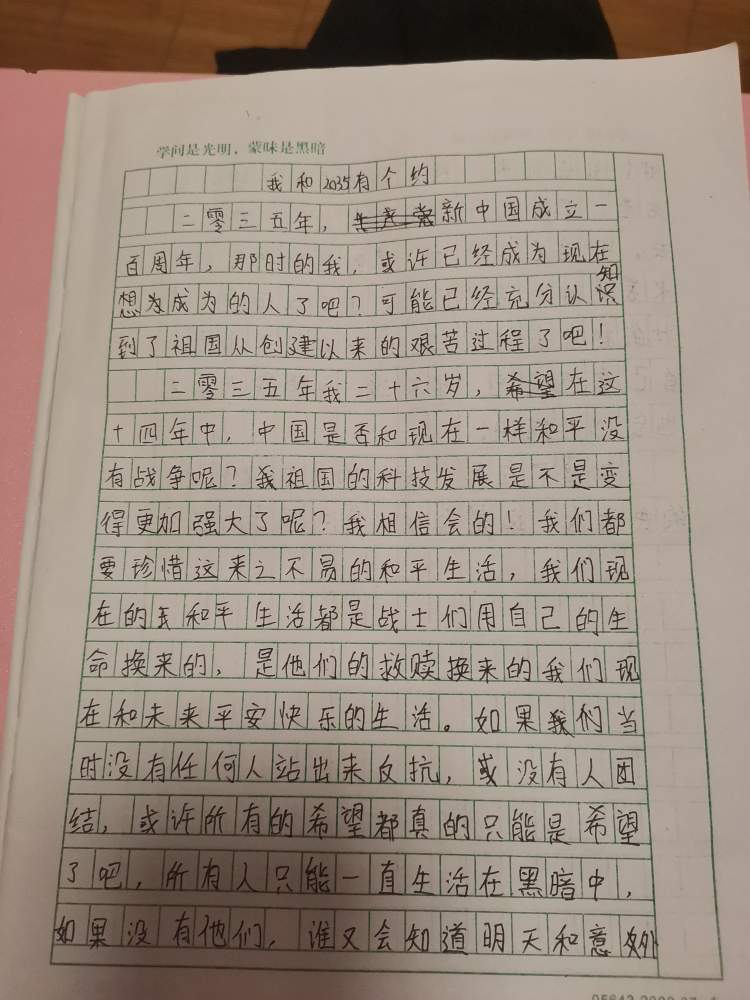 学问是光明，蒙昧是黑暗
我和2035有个约
二零三五年，新中国成立一
百周年，那时的我，或许已经成为现在
想为成为的人了吧？可能已经充分认识知
到了祖国从创建以来的艰苦过程了吧！
二零三五年我二十六岁，希望在这
十四年中，中国是否和现在一样和平没
有战争呢？我祖国的科技发展是不是变
得更加强大了呢？我相信会的！我们都
要珍惜这来之不易的和平生活，我们现
在的和平生活都是战士们用自己的生
命换来的，是他们的救赎换来的我们现
在和未来平安快乐的生活。如果我们当
时没有任何人站出来反抗，或没有人团
结，或许所有的希望都真的只能是希望
了吧，所有人只能一直生活在黑暗中，
如果没有他们，谁又会知道明天和意外